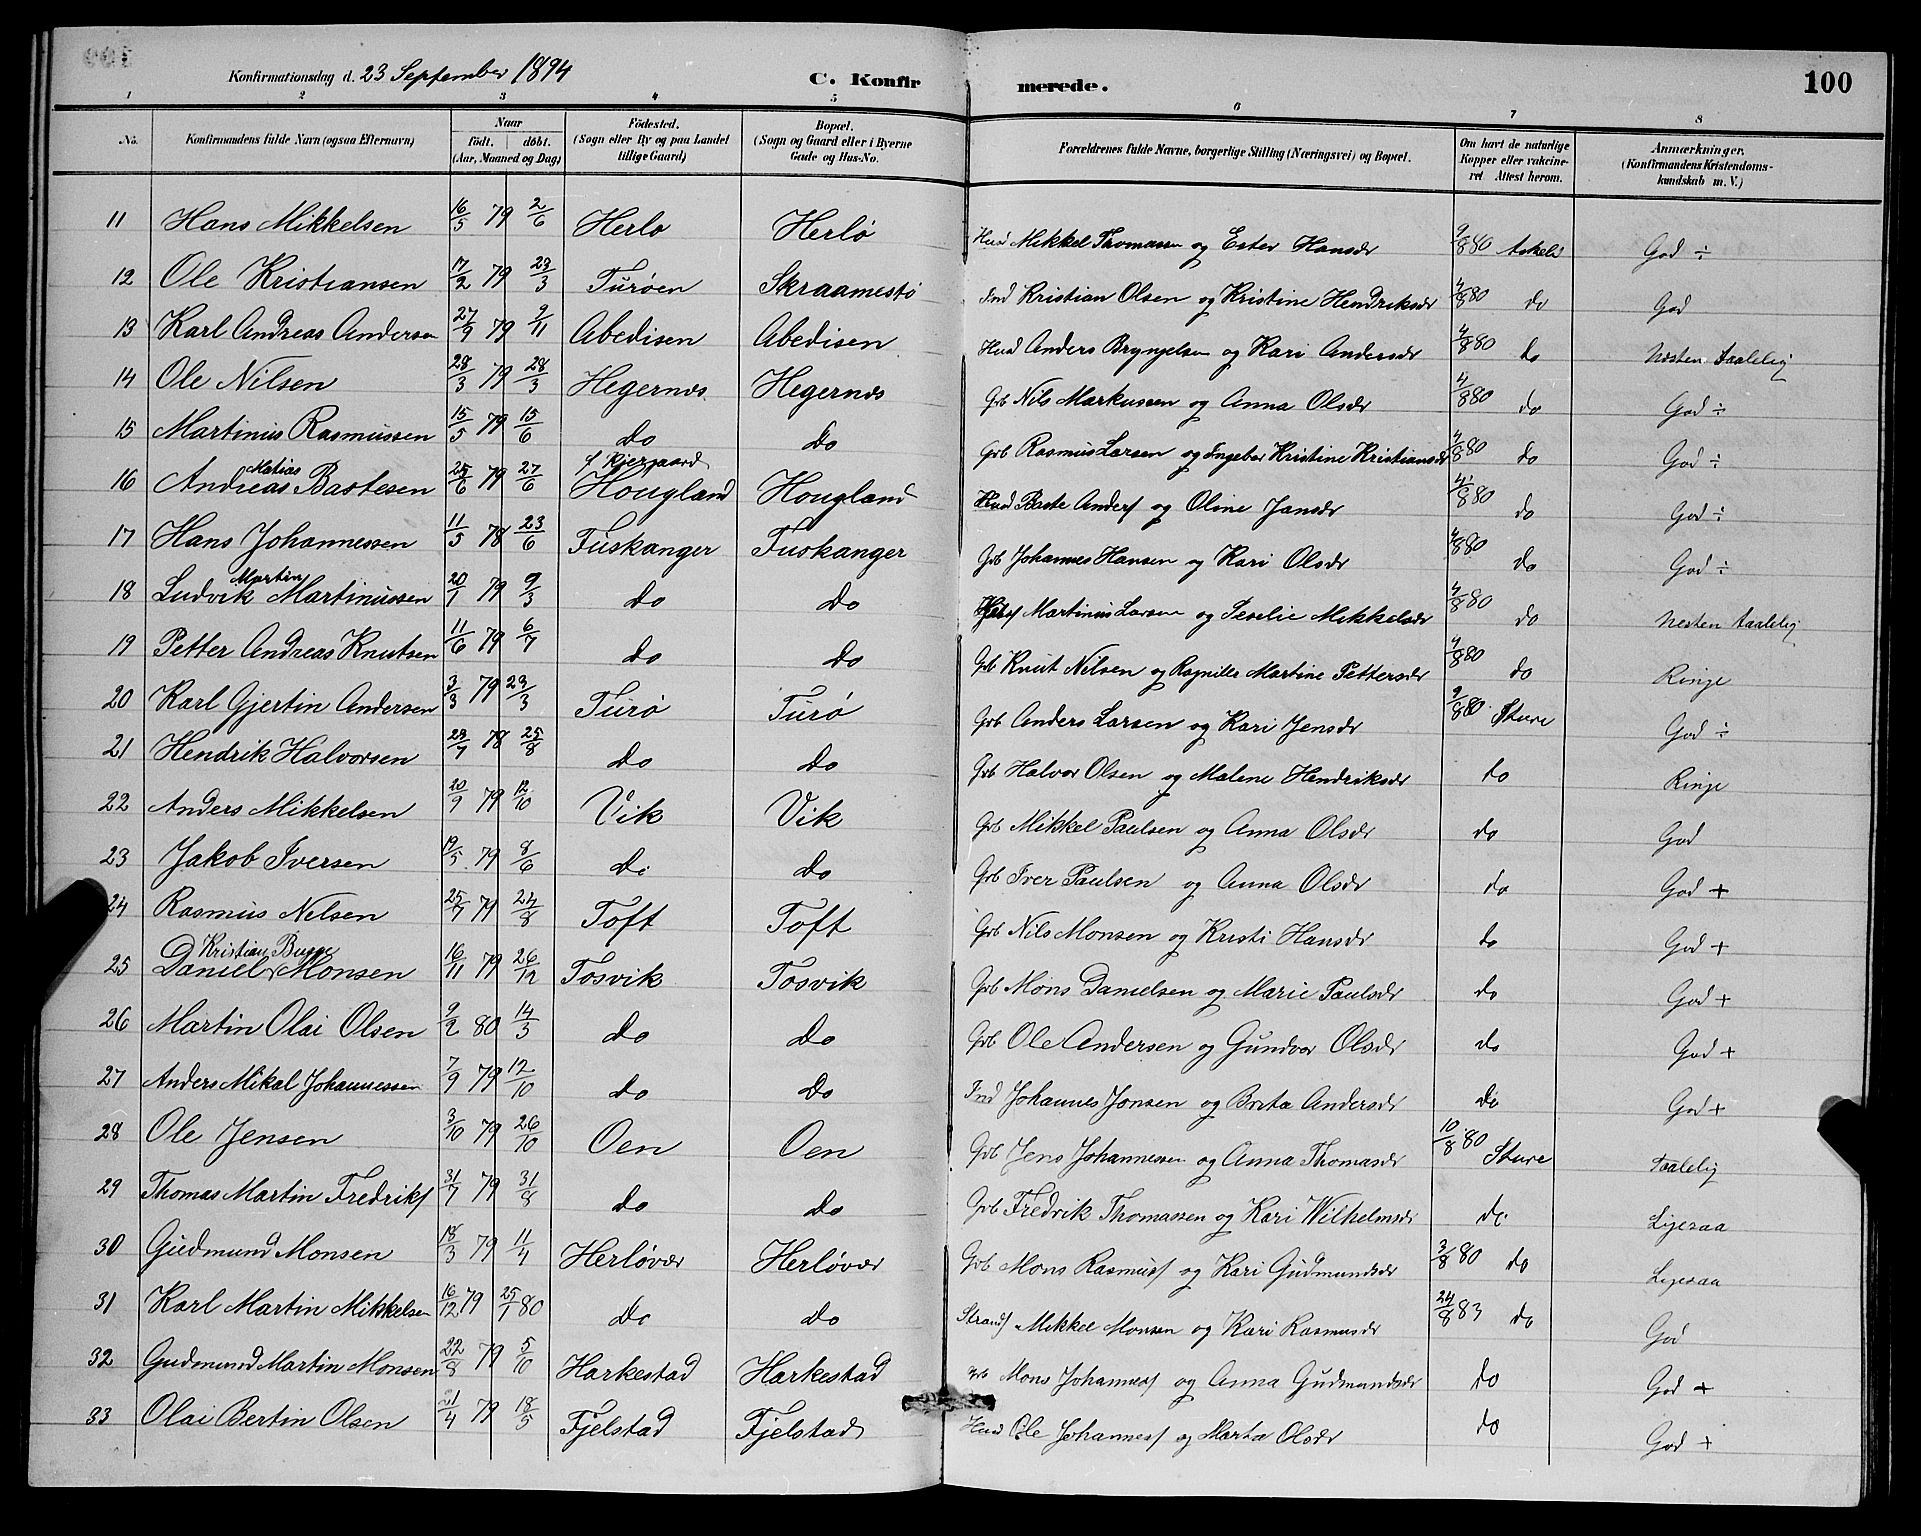 Konfirmationsdag d. 23 September 1894 C. Konfirmerede. 100
1 2 3 4 5 6 7 8
No. Konfirmandens fulde Navn (ogsaa Efternavn) Naar födt. döbt. (Aar, Maaned og Dag) Födested. (Sogn eller By og paa Landet tillige Gaard) Bopæl. (Sogn og Gaard eller i Byerne Gade og Hus-No. Forældrenes fulde Navne, borgerlige Stilling (Næringsvei) og Bopæl. Om havt de naturlige Kopper eller vakcineret Attest herom. Anmærkninger. (Konfirmandens Kristendomskundskab m. V.)
11 Hans Mikkelsen 16/5 79 2/6 Herlo Herlö Husd Mikkel Thomassen og Ester Hansdr 9/8 80 Askeln God ÷
12 Ole Kristiansen 17/2 79 23/3 Turöen Skraamestö Ind Kristian Olsen og Kristine Hendriksdr 4/8 80 do God
13 Karl Andreas Andersen 27/9 79 9/11 Abedisen Abedisen Husd Anders Bryngelsen og Kari Andersdr 4/8 80 do Nesten Taalelig
14 Ole Nilsen 28/3 79 28/3 Hegernæs Hegernes Grb Nils Markussen og Anna Olsdr 4/8 80 do God ÷
15 Martinus Rasmussen 15/5 79 15/6 do do Grb Rasmus Larsen og Ingebor Kristine Kristiansdr 4/8 80 do God ÷
16 Andreas Matias Bastesen 25/6 79 27/6 Hougland Hougland Husd Baste Anders og Oline Jansdr 4/8 80 do God ÷
17 Hans Johannessen 11/5 78 23/6 Tuskanger Tuskanger Grb Johannes Hansen og Kari Olsdr 4/8 80 do God ÷
18 Ludvik Martin Martinussen 20/1 79 9/3 do do Martinus Larsen og Seselie Mikkelsdr 4/8 80 do Nesten taalelig
19 Petter Andreas Knutsen 11/6 79 6/7 do do Grb Knut Nilsen og Ragnilda Martine Pettersdr 4/8 80 do Ringe
20 Karl Gjertin Andersen 3/3 79 23/3 Turö Turö Grb Anders Larsen og Kari Jensdr 9/8 80 Sture God ÷
21 Hendrik Halvorsen 23/7 78 25/8 do do Grb Halvor Olsen og Malene Hendriksdr do Ringe
22 Anders Mikkelsen 20/9 79 12/10 Vik Vik Grb Mikkel Paulsen og Anna Olsdr do God
23 Jakob Iversen 19/5 79 8/6 do do Grb Iver Paulsen og Anna Olsdr do God +
24 Rasmus Nilsen 25/7 79 24/8 Toft Toft Grb Nils Monsen og Kristi Hansdr do God +
25 Daniel Kristian Bugge Monsen 16/11 79 26/12 Tosvik Tosvik Grb Mons Danielsen og Marie Paulsdr do God +
26 Martin Olai Olsen 9/2 80 14/3 do do Grb Ole Andersen og Gundvor Olsdr do God +
27 Anders Mikal Johannessen 7/9 79 12/10 do do Ind Johannes Jonsen og Brita Andersdr do God +
28 Ole Jensen 3/10 79 26/10 Oen Oen Grb Jens Johannessen og Anna Thomasdr 10/8 80 Sture Taalelig
29 Thomas Martin Fredriks 31/7 79 31/8 do do Grb Fredrik Thomassen og Kari Wilhelmsdr do Ligesaa
30 Gudmund Monsen 18/3 79 11/4 Herlövær Herlövær Grb Mons Rasmuss og Kari Gudmundsdr 3/8 80 do Ligesaa
31 Karl Martin Mikkelsen 16/12 79 25/1 80 do do Strands Mikkel Monsen og Kari Rasmusdr 24/8 83 do God
32 Gudmund Martin Monsen 22/8 79 5/10 Harkestad Harkestad Grb Mons Johanness og Anna Gudmundsdr do God +
33 Olai Bertin Olsen 21/4 79 18/5 Fjelstad Fjelstad Husd Ole Johanness og Marta Olsdr do God +